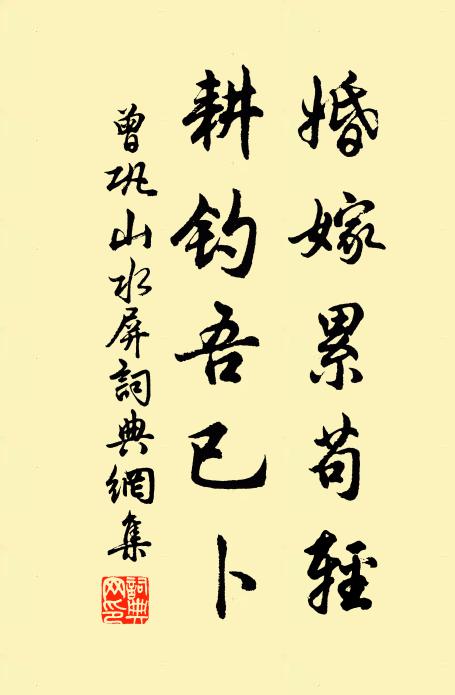 婚嫁累苟輕
耕釣吾已卜
曾巩山水屏詞典網集
詞典网印